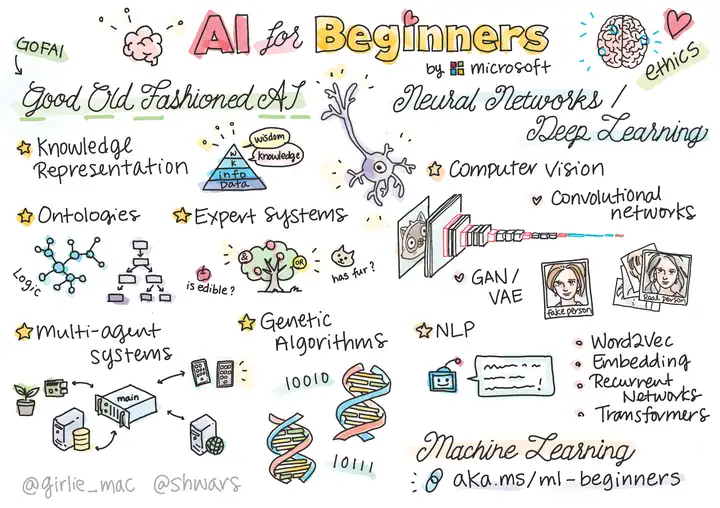 GOFAI
AI for Beginners
by microsoft
ethics
Good Old Fashioned AI
Knowledge
Representation
wisdom
knowledge
W
K
info
Data
Ontologies
Logic
Expert Systems
&
OR
is edible?
has fur?
Multi-agent
systems
main
Genetic
Algorithms
10010
10111
Neural Networks /
Deep Learning
Computer Vision
Convolutional
networks
GAN/
VAE
fake person
Real person
NLP
Word2Vec
Embedding
Recurrent
Networks
Transformers
Machine Learning
aka.ms/ml-beginners
@girlie_mac @shwars